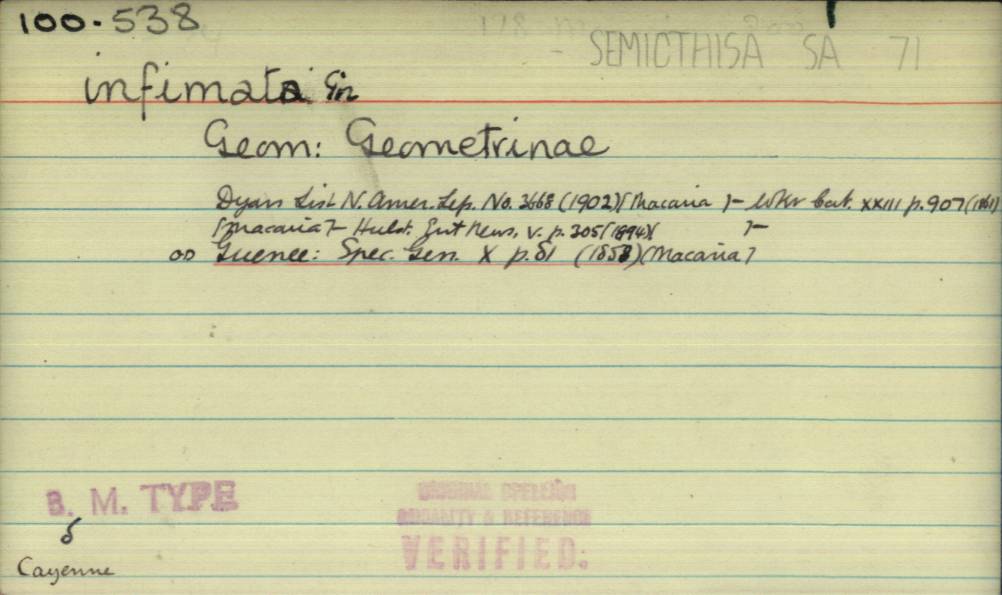 100.538
SEMIOTHISA SA 71
infimata Gn
Geom: Geometrinae
Dyars List N. Amer. Lep. No. 3668 (1902)[Macaria ]- Wkr Cat. XXIII p. 907 (1861)
[Macaria]- Hulst. Ent News, v. p. 305 (1894)[ ]-
Guenee: Spec. Gen. X p. 81 (1858)(Macaria]
B. M. TYPE
ORIGINAL SPELLING
LOCALITY & REFERENCE
VERIFIED.
Cayenne